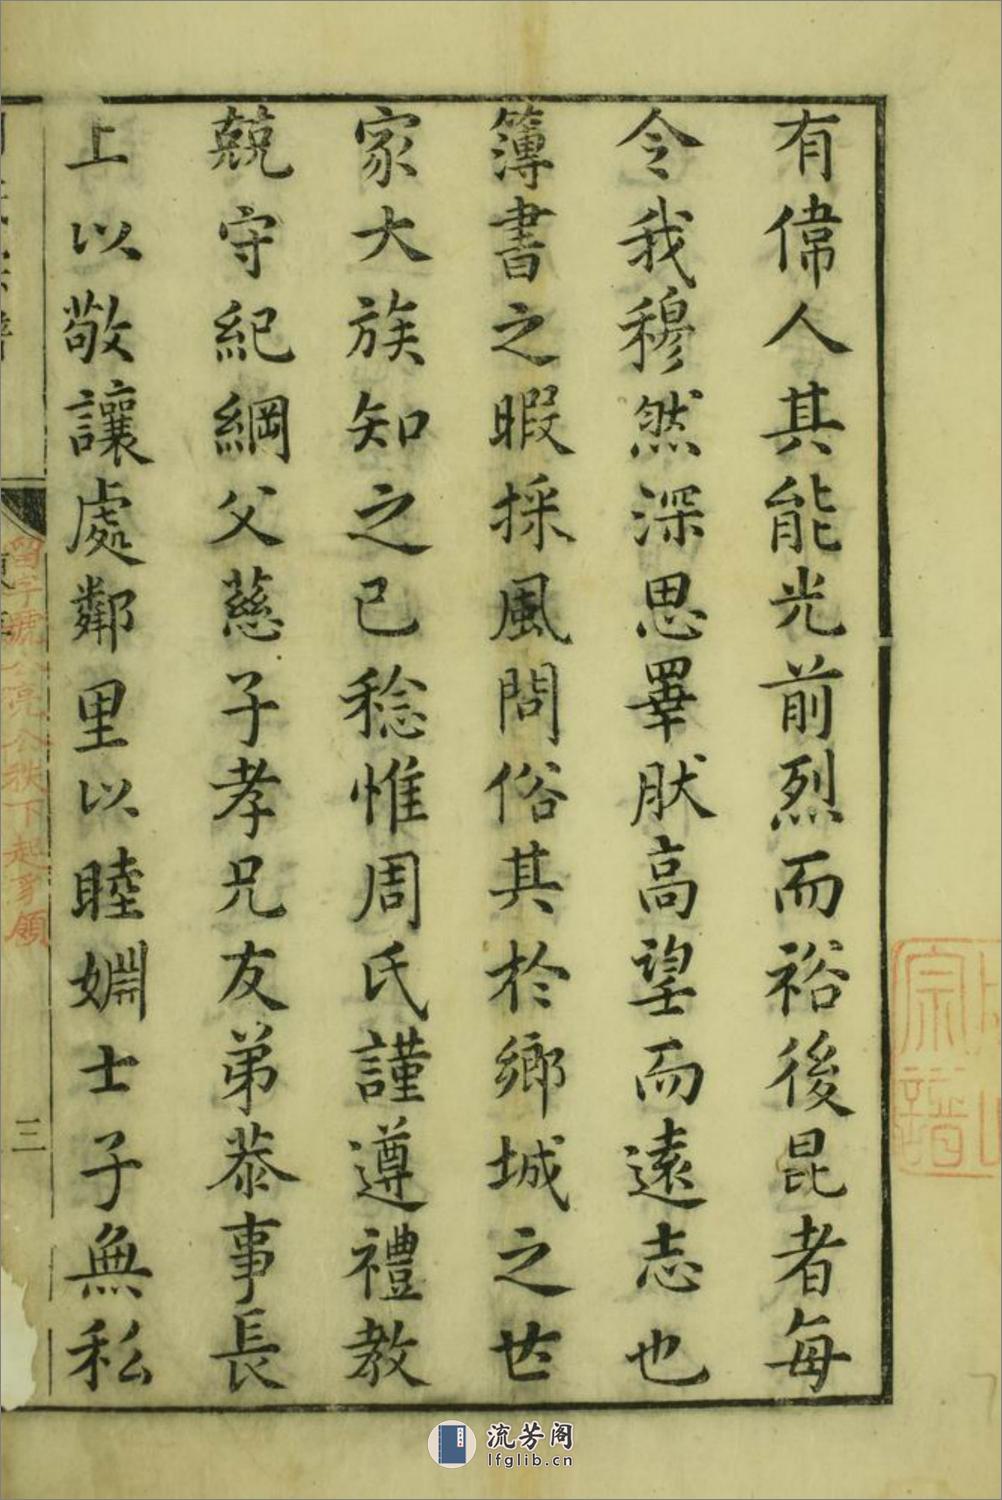 有偉人其能光前烈而裕後昆者每
令我穆然深思睪肰高望而遠志也
簿書之暇採風問俗其於鄉城之世
家大族知之已稔惟周氏謹遵禮教
兢守紀綱父慈子孝兄友弟恭事長
上以敬讓處鄰里以睦婣士子無私
三
留字號公亮公秩下起夛領
宗譜
流芳阁
lfglib.cn